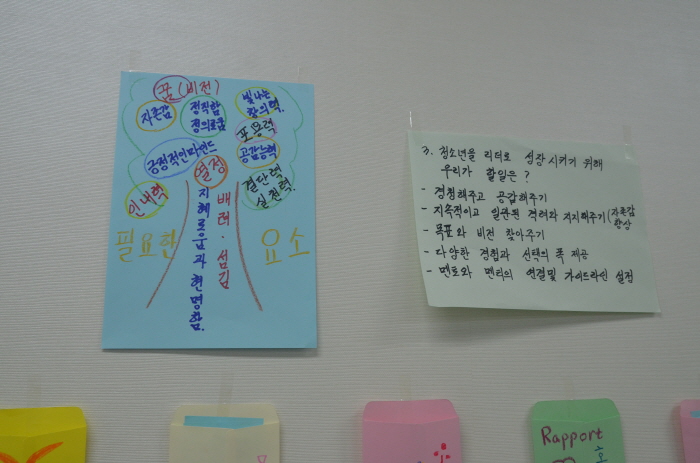 꿈(비전)
자존감
정직함
정의로움
빛나는
창의력.
포용력
긍정적인마인드
공감능력
열정
인내력
결단력
실천력.
배려·섬김
지혜로움과현명함.
필요한
요소
3. 청소년을 리더로 성장시키기 위해
우리가 할일은?
- 경청해주고 공감해주기
- 지속적이고 일관된 격려와 지지해주기(자존감
향상
- 목표와 비전 찾아주기
- 다양한 경험과 선택의 폭 제공
- 멘토와 멘티의 연결및 가이드라인 설정
Rapport